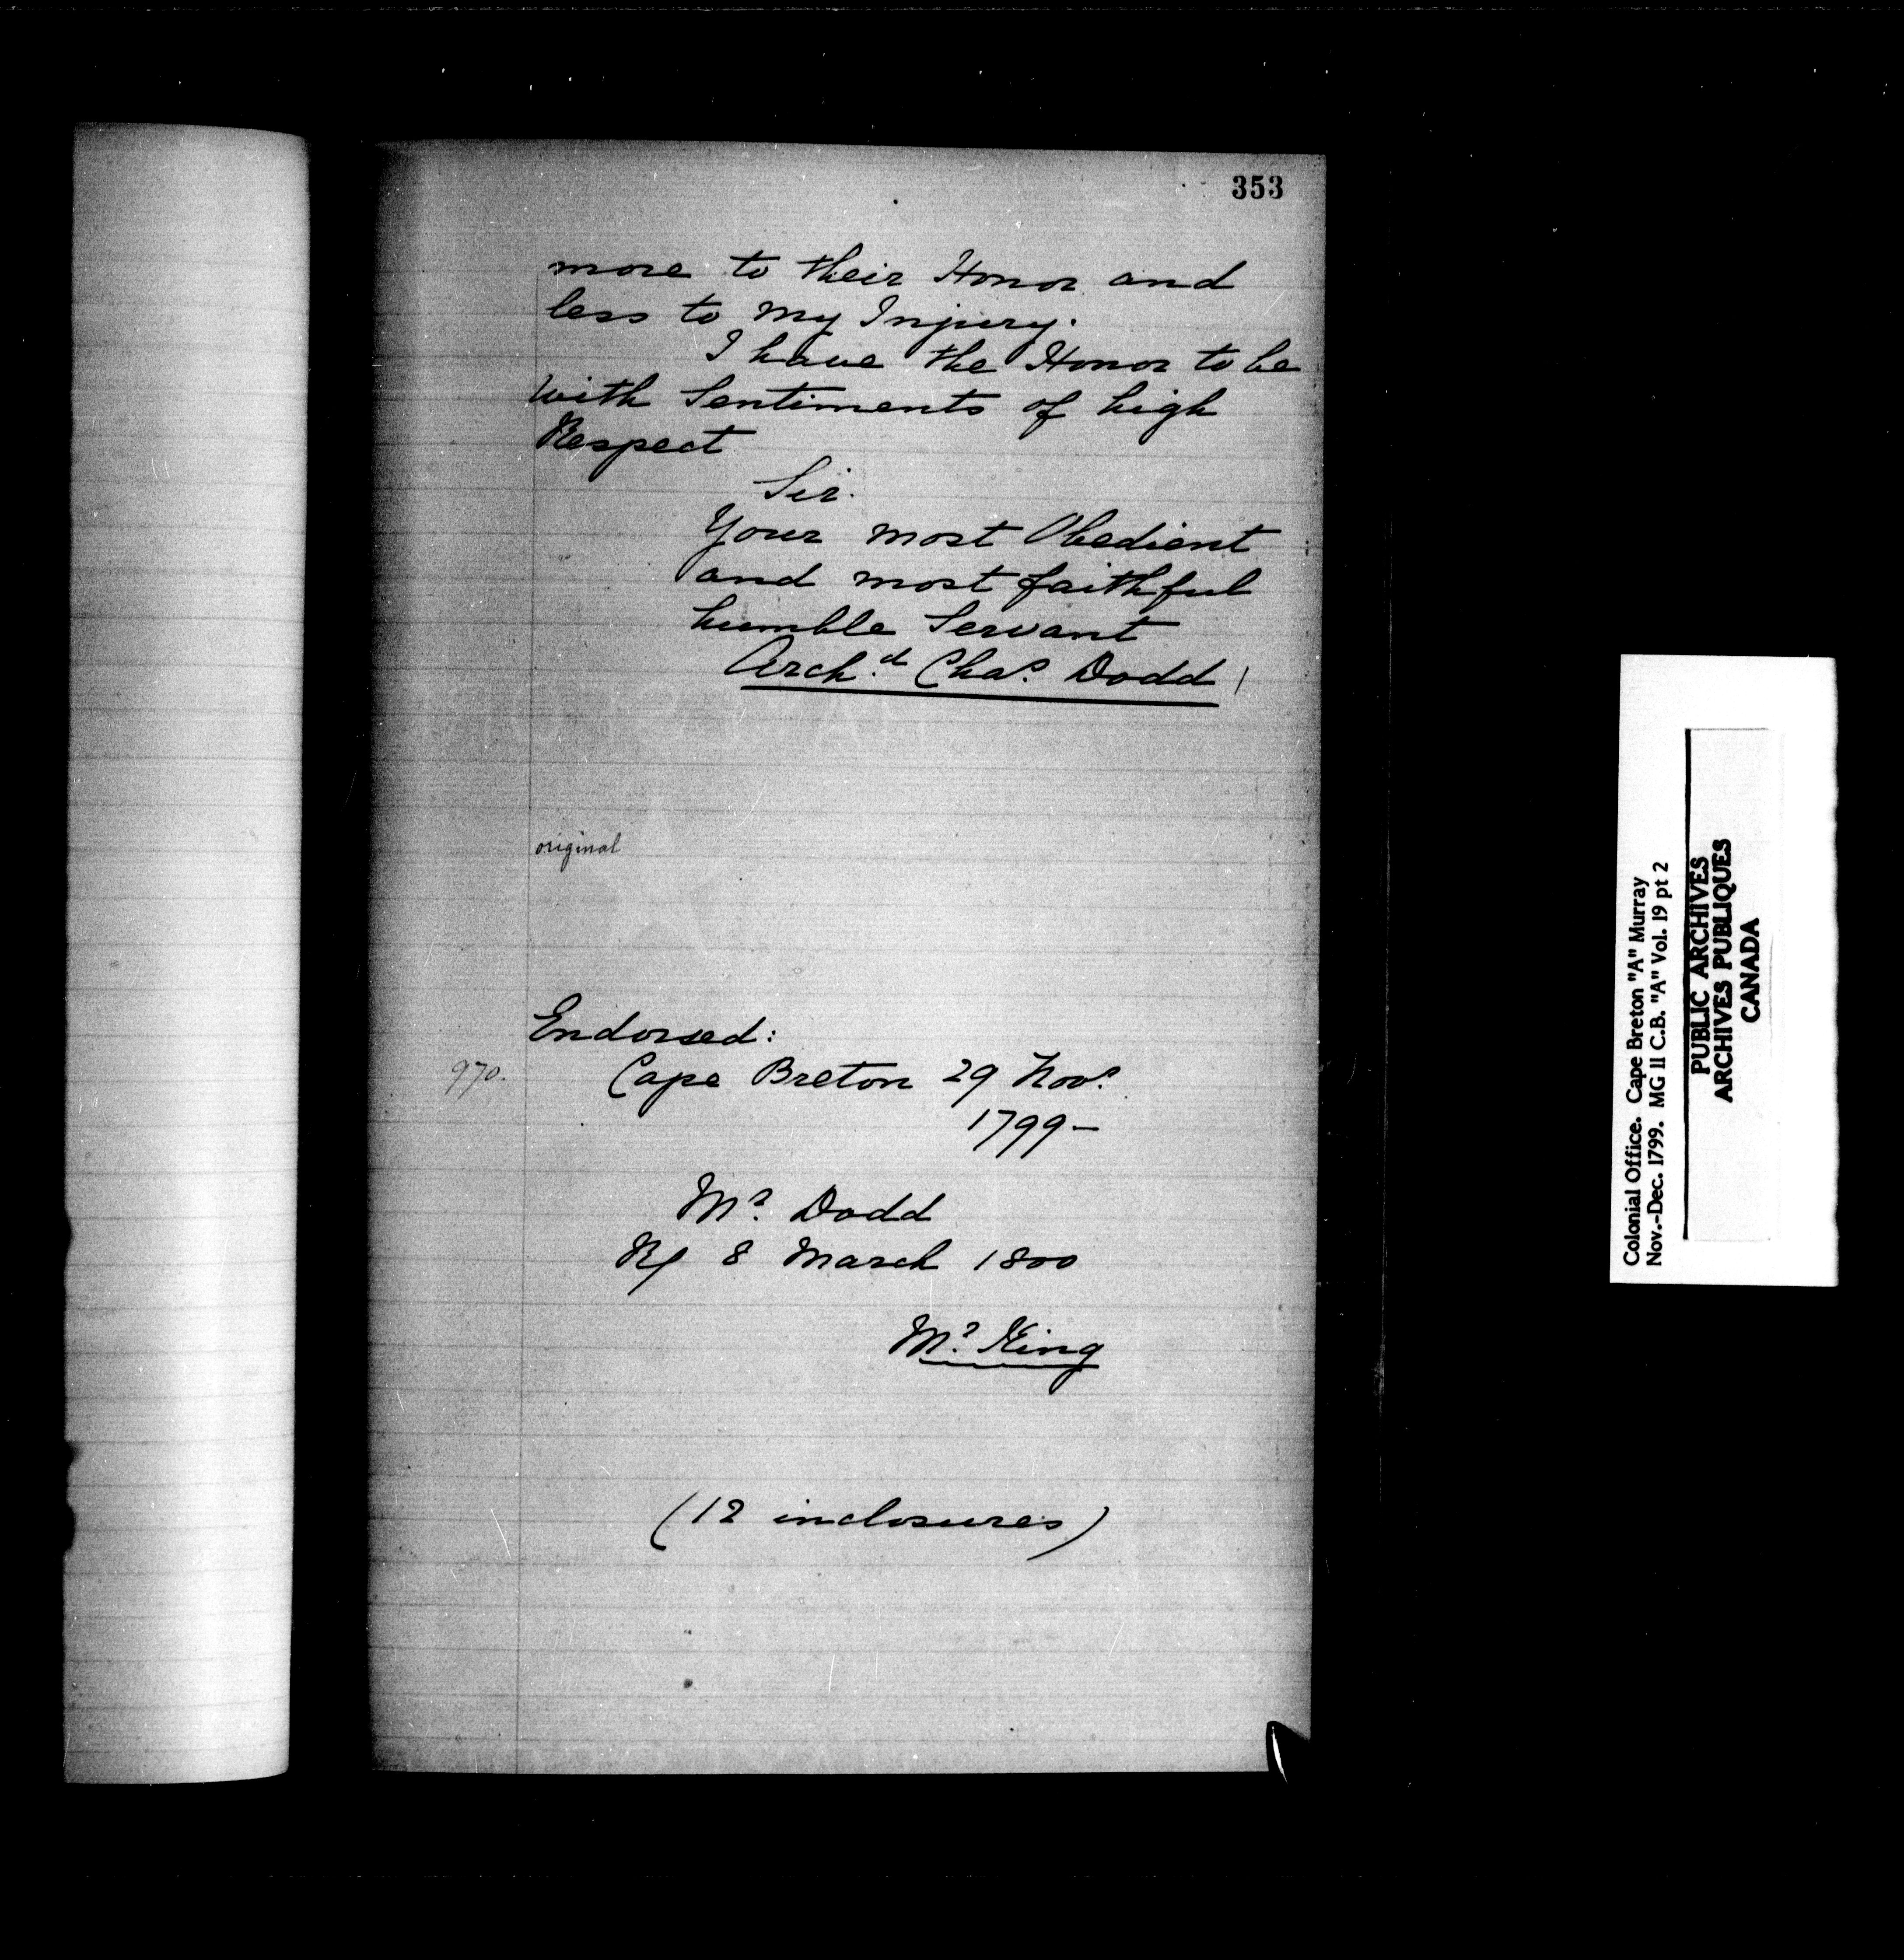 353
more to their Honor and
less to my Injury.
I have the Honor to be
with Sentiments of high
Respect
Sir.
Your most Obedient
and most faithful
humble Servant
Arch.d Chas. Dodd
original
Endorsed:
970.
Cape Breton 29 Novr.
1799-
Mr. Dodd
R/ 8 March 1800
Mr. King
(12 inclosures)
Colonial Office. Cape Breton "A" Murray
Nov.-Dec. 1799. MG 11 C.B. "A" Vol. 19 pt 2
PUBLIC ARCHIVES
ARCHIVES PUBLIQUES
CANADA